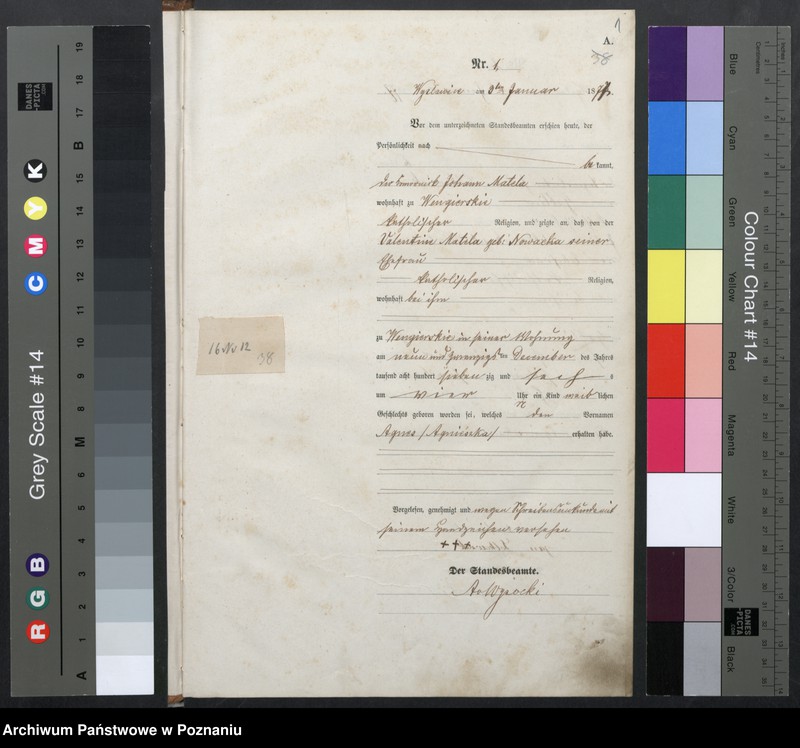 1
A.
38
Nr. 1.
am Januar 1877.
Vor dem unterzeichneten Standesbeamten erschien heute, der
Persönlichkeit nach
be kannt,
der Johann Matela
wohnhaft zu Wengierskie
katholischer Religion, und zeigte an, daß von der
Valentine Matela geb. Nowacka seiner
Ehefrau
katholischer Religion,
wohnhaft bei ihm
zu Wengierskie in seiner Wohnung
am neun und zwanzigsten December des Jahres
tausend acht hundert sieben zig und sech s
um vier Uhr ein Kind weib lichen
Geschlechts geboren worden sei, welches den Vornamen
Agnes /Agnieszka/ erhalten habe.
Vorgelesen, genehmigt und wegen Schreibensunkunde mit
seinem Handzeichen versehen
+++
Der Standesbeamte.
16 Nr 12
38
DANES
-PICTA
.COM
Grey Scale #14
R G B C M Y K
A 1 2 3 4 5 6 M 7 8 9 10 11 12 13 14 15 B 17 18 19
Colour Chart #14
Blue
Cyan
Green
Yellow
Red
Magenta
White
3/Color
Black
Centimetres
Inches
DANES
-PICTA
.COM
Archiwum Państwowe w Poznaniu